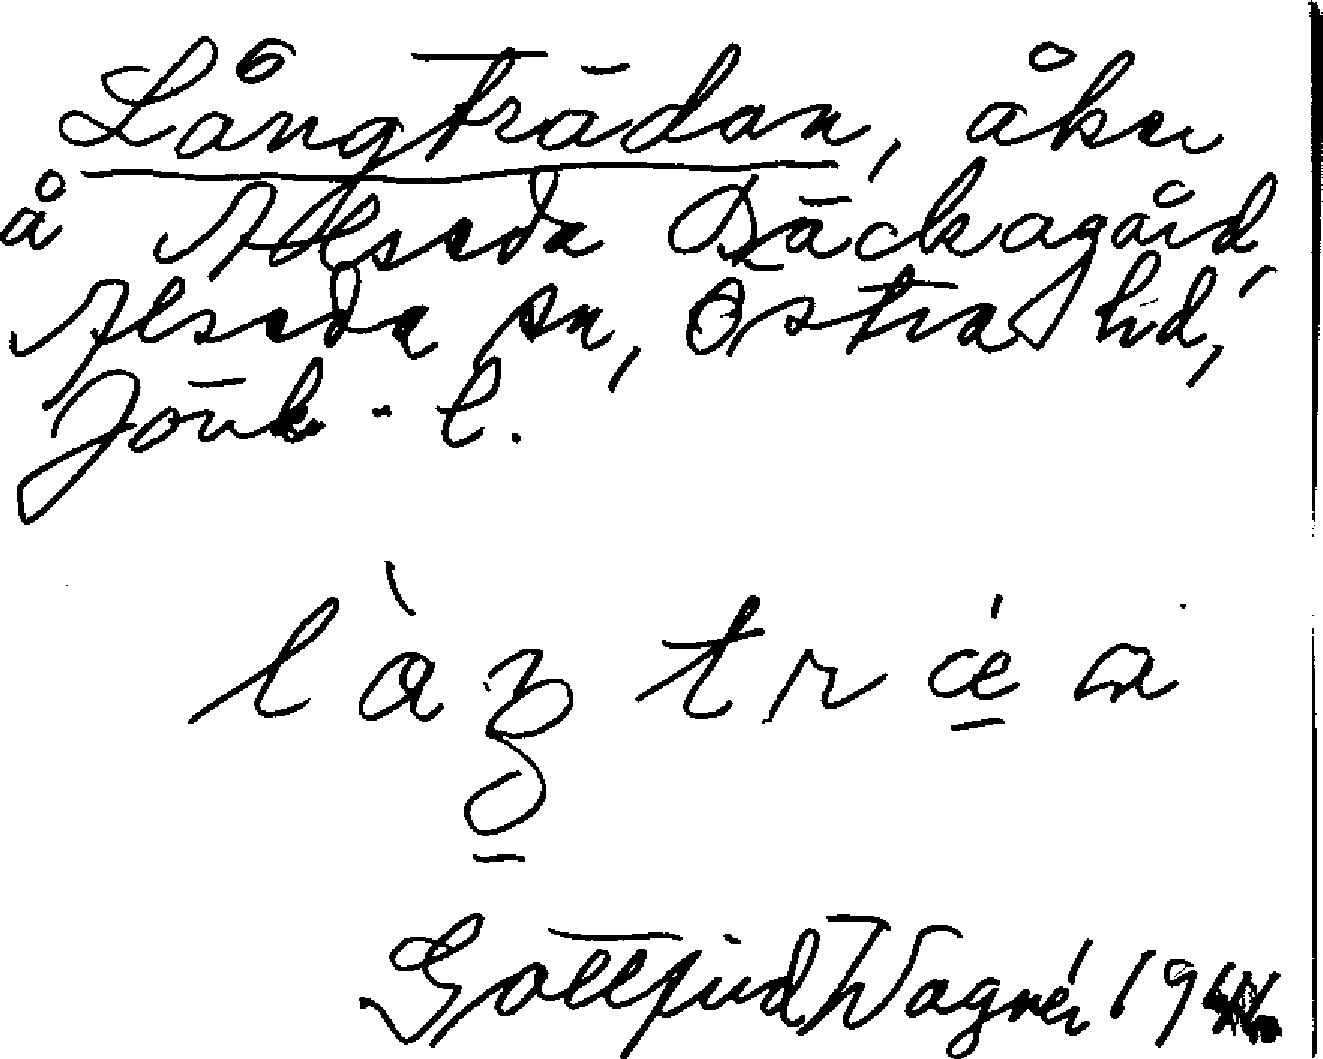 Långträdan, åker
å Alseda Bäckagård,
Alseda sn, Östra hd,
Jönk. l.
Gottfrid Wagnér